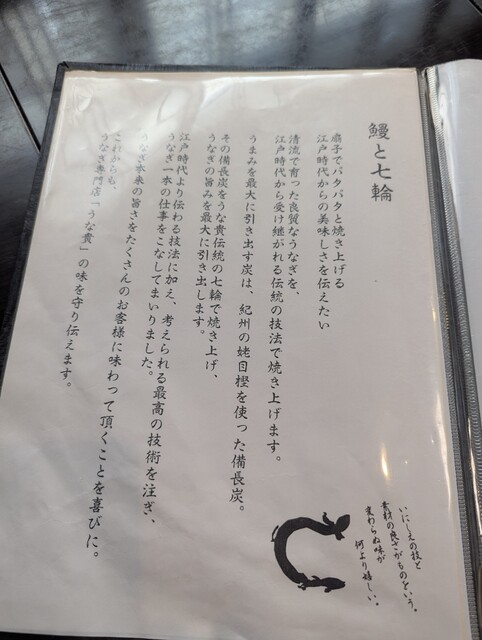 鰻と七輪
扇子でパタパタと焼き上げる
江戸時代からの美味しさを伝えたい
清流で育った良質なうなぎを、
江戸時代から受け継がれる伝統の技法で焼き上げます。
うまみを最大に引き出す炭は、紀州の姥目樫を使った備長炭。
その備長炭をうな貴伝統の七輪で焼き上げ、
うなぎの旨みを最大に引き出します。
江戸時代より伝わる技法に加え、考えられる最高の技術を注ぎ、
うなぎ一本の仕事をこなしてまいりました。
うなぎ本来の旨さをたくさんのお客様に味わって頂くことを喜びに。
これからも、
うなぎ専門店「うな貴」の味を守り伝えます。
いにしえの技と
素材の良さがものをいう。
変わらぬ味が
何より嬉しい。